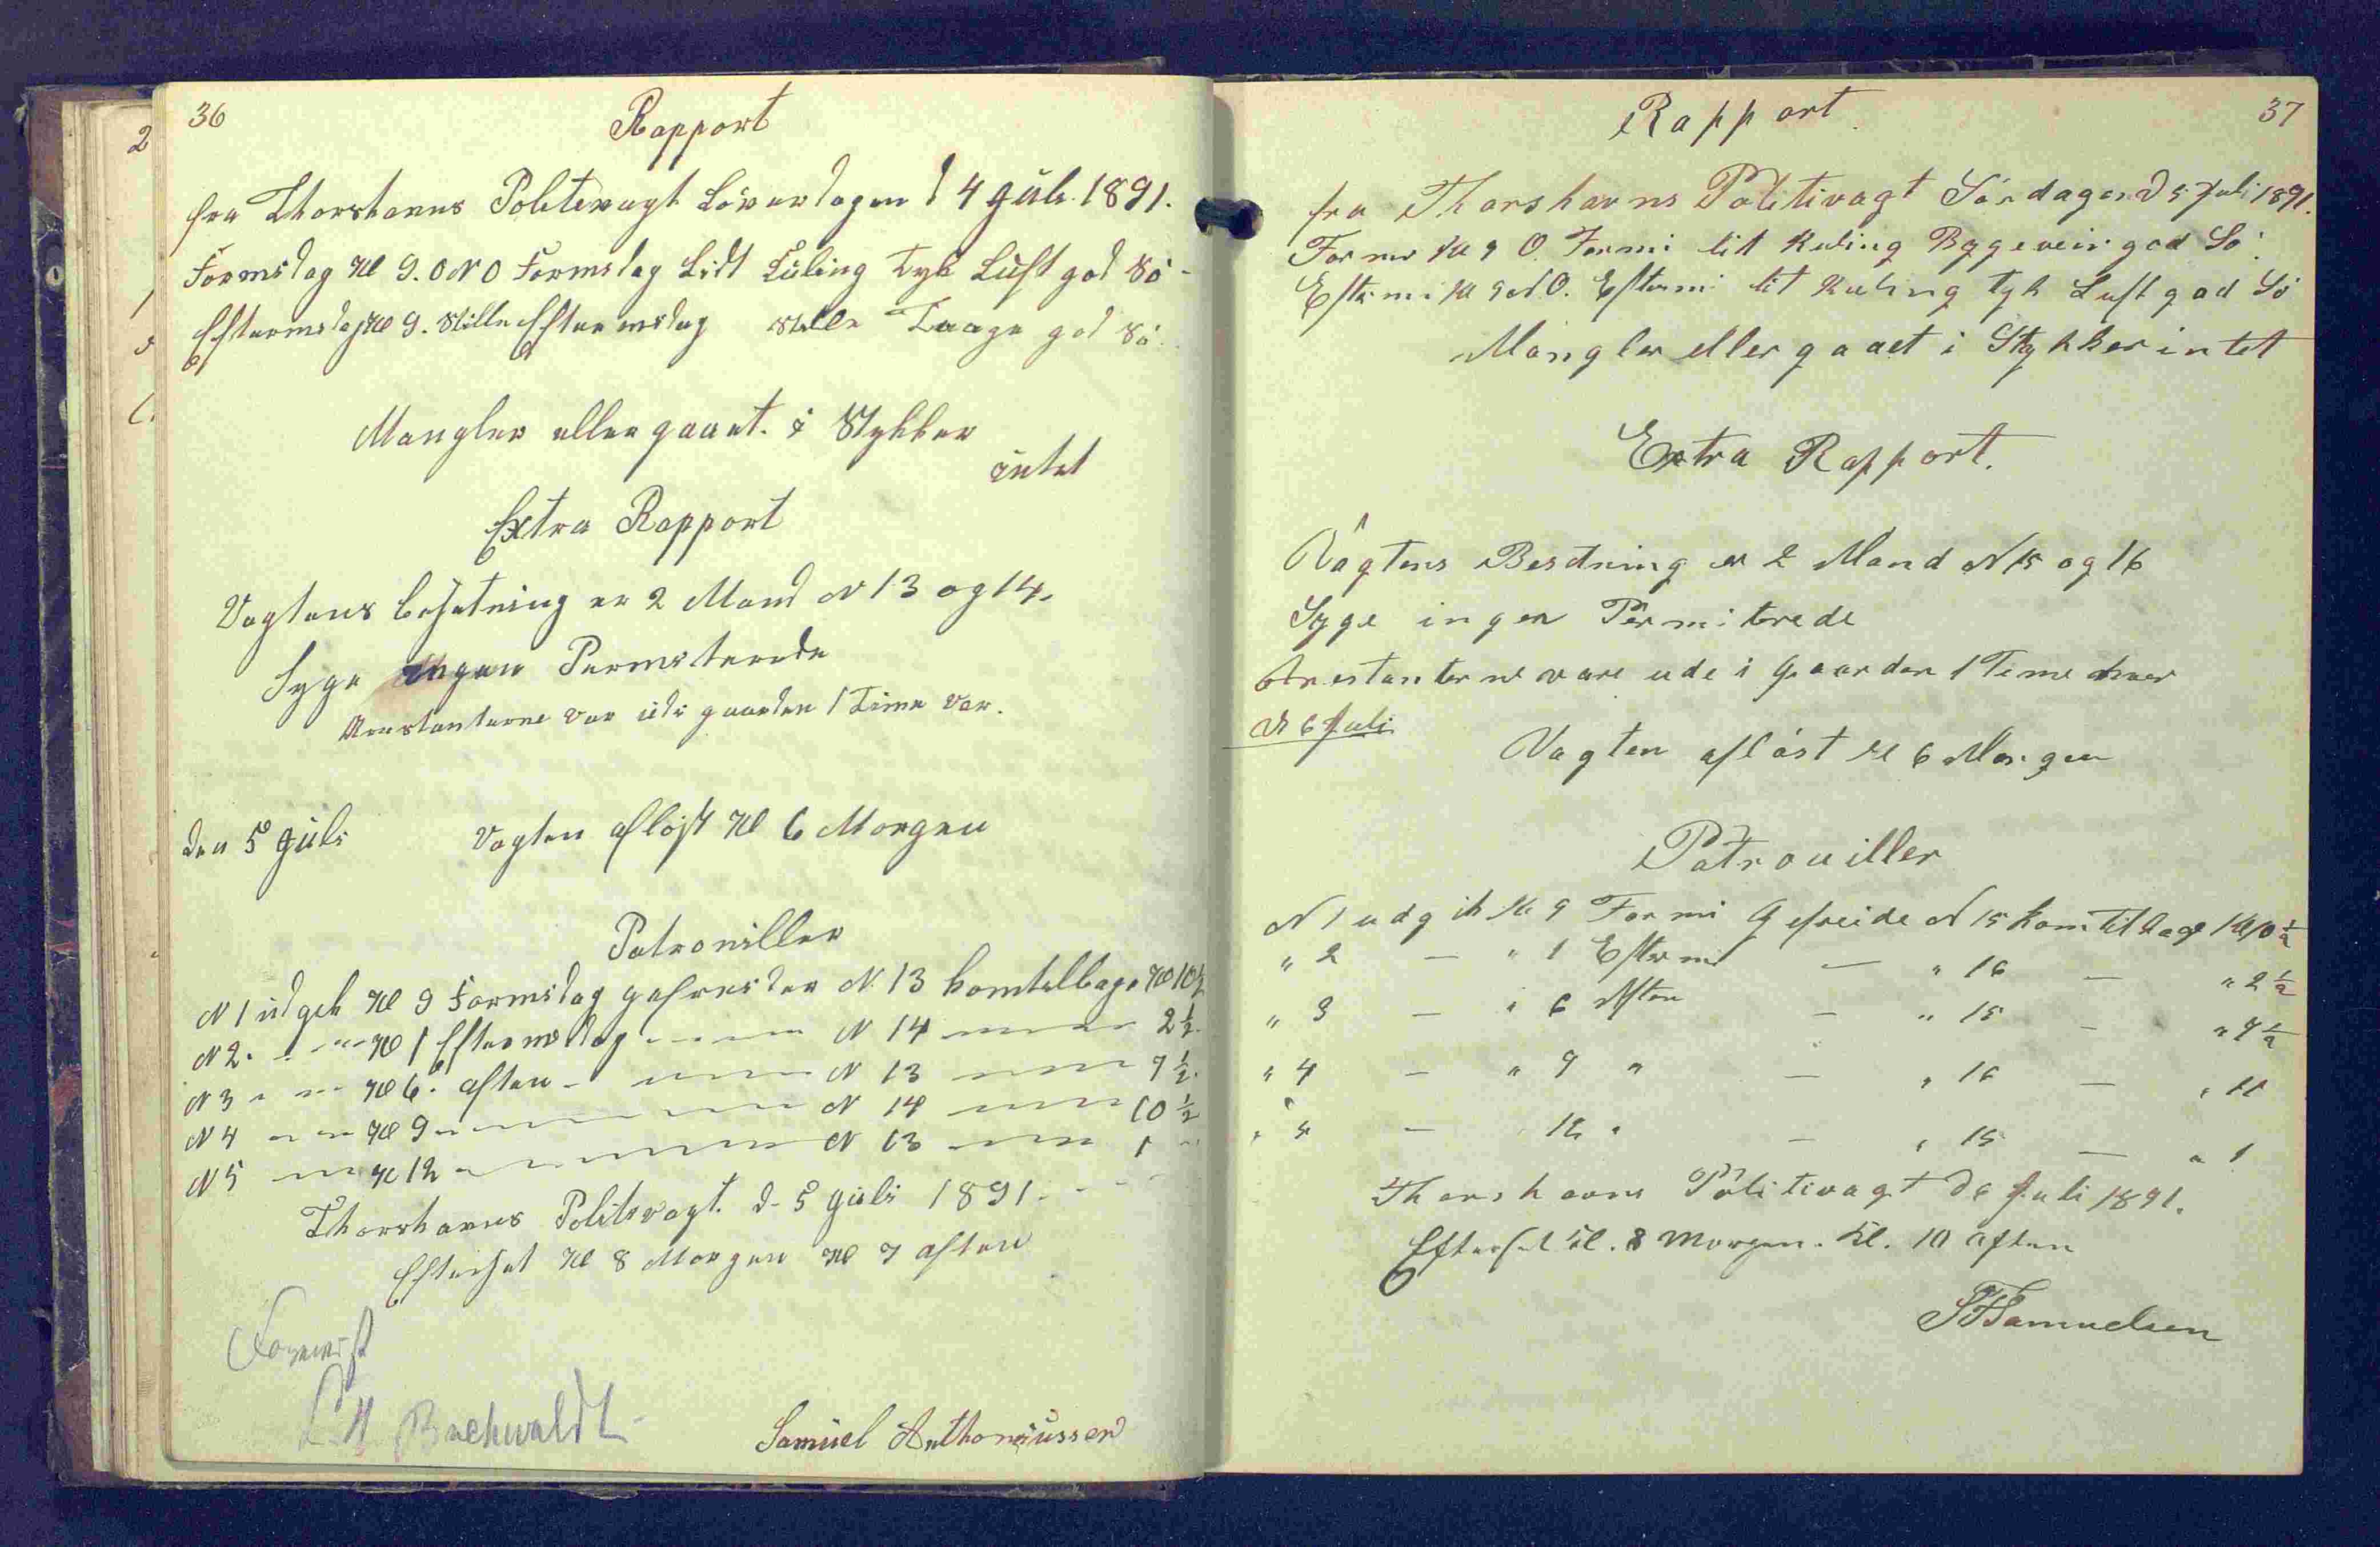 36
Rapport
fra Thorshavns Politivagt Löverdagen d 4 Juli 1891.
Formidag Kl 9. ONO Formidag Lidt Kuling Tyk Luft god Sö
Eftermidag Kl 9. Stille Eftermidag Stille Taage god Sö
Mangler eller gaaet i Stykker
intet
Extra Rapport
Vagtens besetning er 2 Mand N 13 og 14.
Syge ingen Permiterede
Arestanterne var ude i gaarden 1 Time var.
den 5 Juli Vagten aflöst Kl 6 Morgen
Patrouiller
N 1 udgik Kl 9 Formidag gefreider N. 13 kom tilbage Kl 10½
N 2. - - - Kl 1 Eftermidag - - - N 14 - - - 2½
N 3 - - - Kl 6. aften - - - N 13 - - - 7½
N 4 - - - Kl 9 - - - N 14 - - - 10½
N 5 - - - Kl 12 - - - N 13 - - - 1 -
Thorshavns Politivagt. d. 5 Juli 1891.
Efterset Kl 8 Morgen Kl 7 aften
Forevist
Buchwaldt
Samuel Anthoniussen
2
37
Rapport
fra Thorshavns Politivagt Söndagen d 5 Juli 1891.
Formi Kl 9 O. Formi lit Kuling Bygeveir god Sö.
Eftermi Kl 9 O. Eftermi lit Kuling tyk Luft god Sö
Mangler eller gaaet i Stykker intet
Extra Rapport.
Vagtens Besetning er 2 Mand N 15 og 16
Syge ingen Permiterede
Arestanterne vare ude i Gaarden 1 Time hver
d 6 Juli
Vagten aflöst Kl 6 Morgen
Patrouiller
N 1 udgik Kl 9 Formi Gefreide N 15 kom tilbage Kl 10½
" 2 — " 1 Eftermi — " 16 — " 2½
" 3 — " 6 Aften — " 15 — " 7½
" 4 — " 9 " — " 16 — " 11
" 5 — 12 " — " 15 — " 1
Thorshavns Politivagt d 6 Juli 1891.
Efterset Kl. 8 Morgen. Kl. 10 Aften
Samuelsen